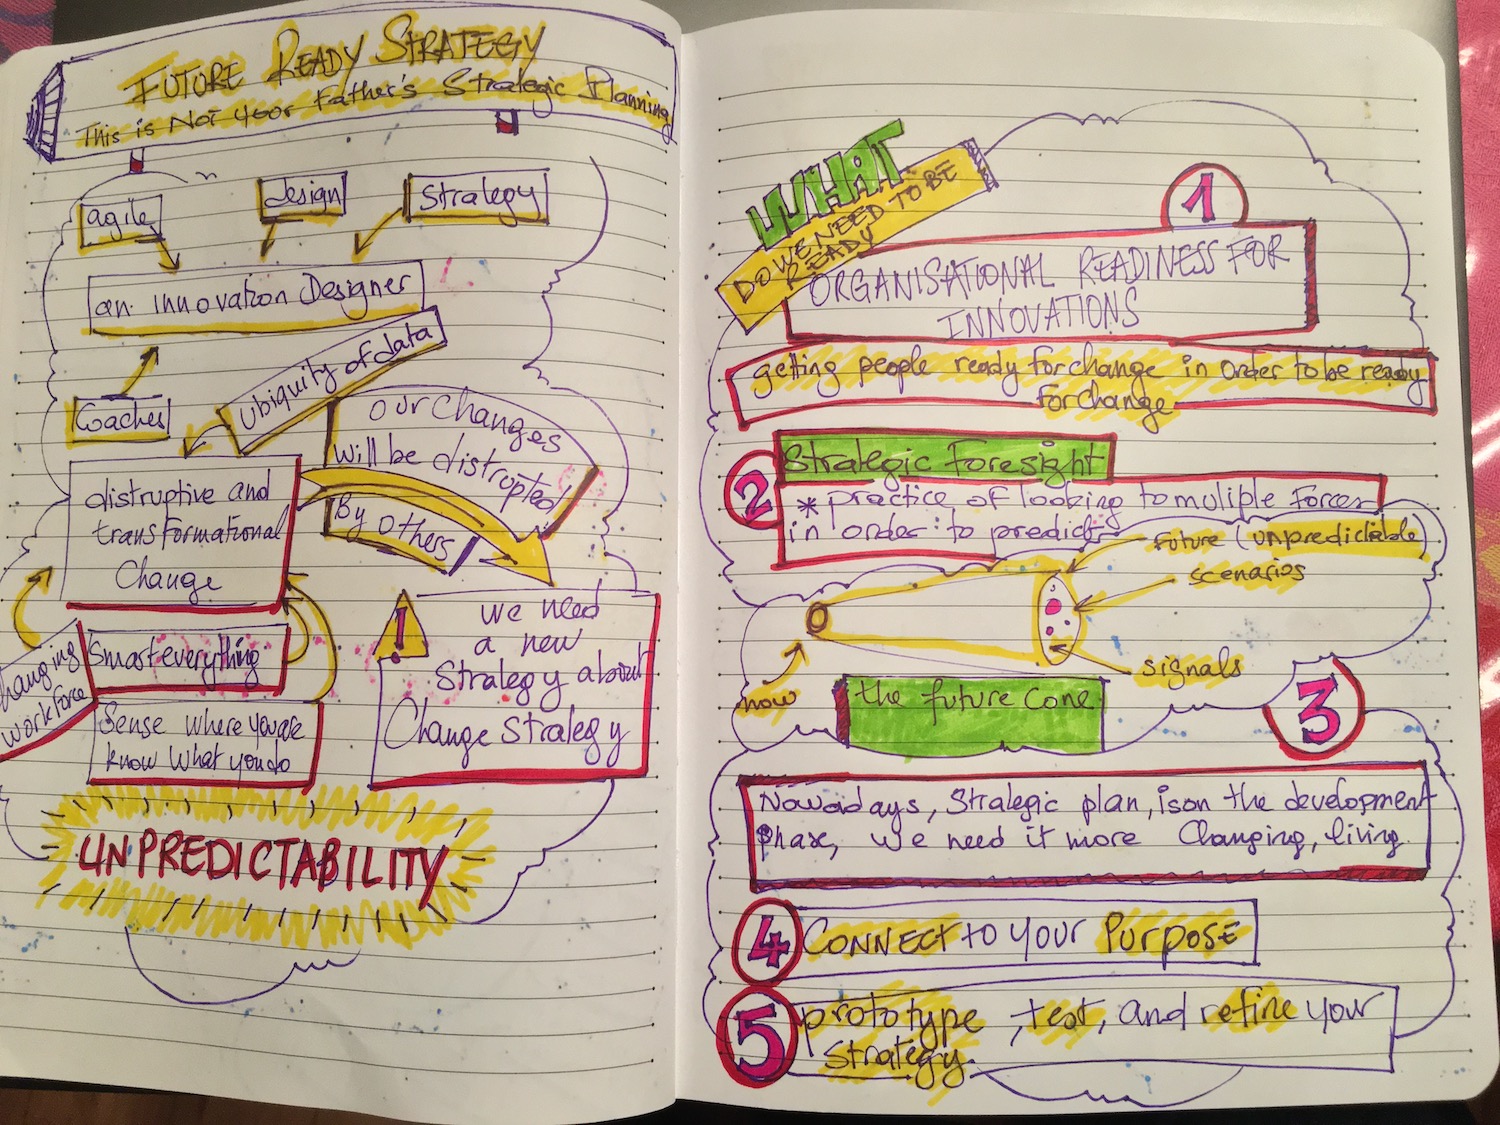 FUTURE READY STRATEGY
This is Not your Father's Strategic Planning
agile
design
Strategy
an innovation Designer
Coaches
ubiquity of data
our changes
will be distrupted
By others
distruptive and
transformational
Change
hanging
workforce
Smart everything
Sense where you are
know what you do
!
we need
a new
Strategy about
Change Strategy
UNPREDICTABILITY
WHAT
DO WE NEED TO BE
READY
1
ORGANISATIONAL READINESS FOR
INNOVATIONS
getting people ready for change in order to be ready
for change
2
Strategic foresight
* practice of looking to muliple forces
in order to predict
future (unpredictable)
scenarios
signals
now
the future cone
3
Nowadays, Strategic plan, is on the development
phase, we need it more Changing, living
4
CONNECT to your Purpose
5
prototype, test, and refine your
Strategy.